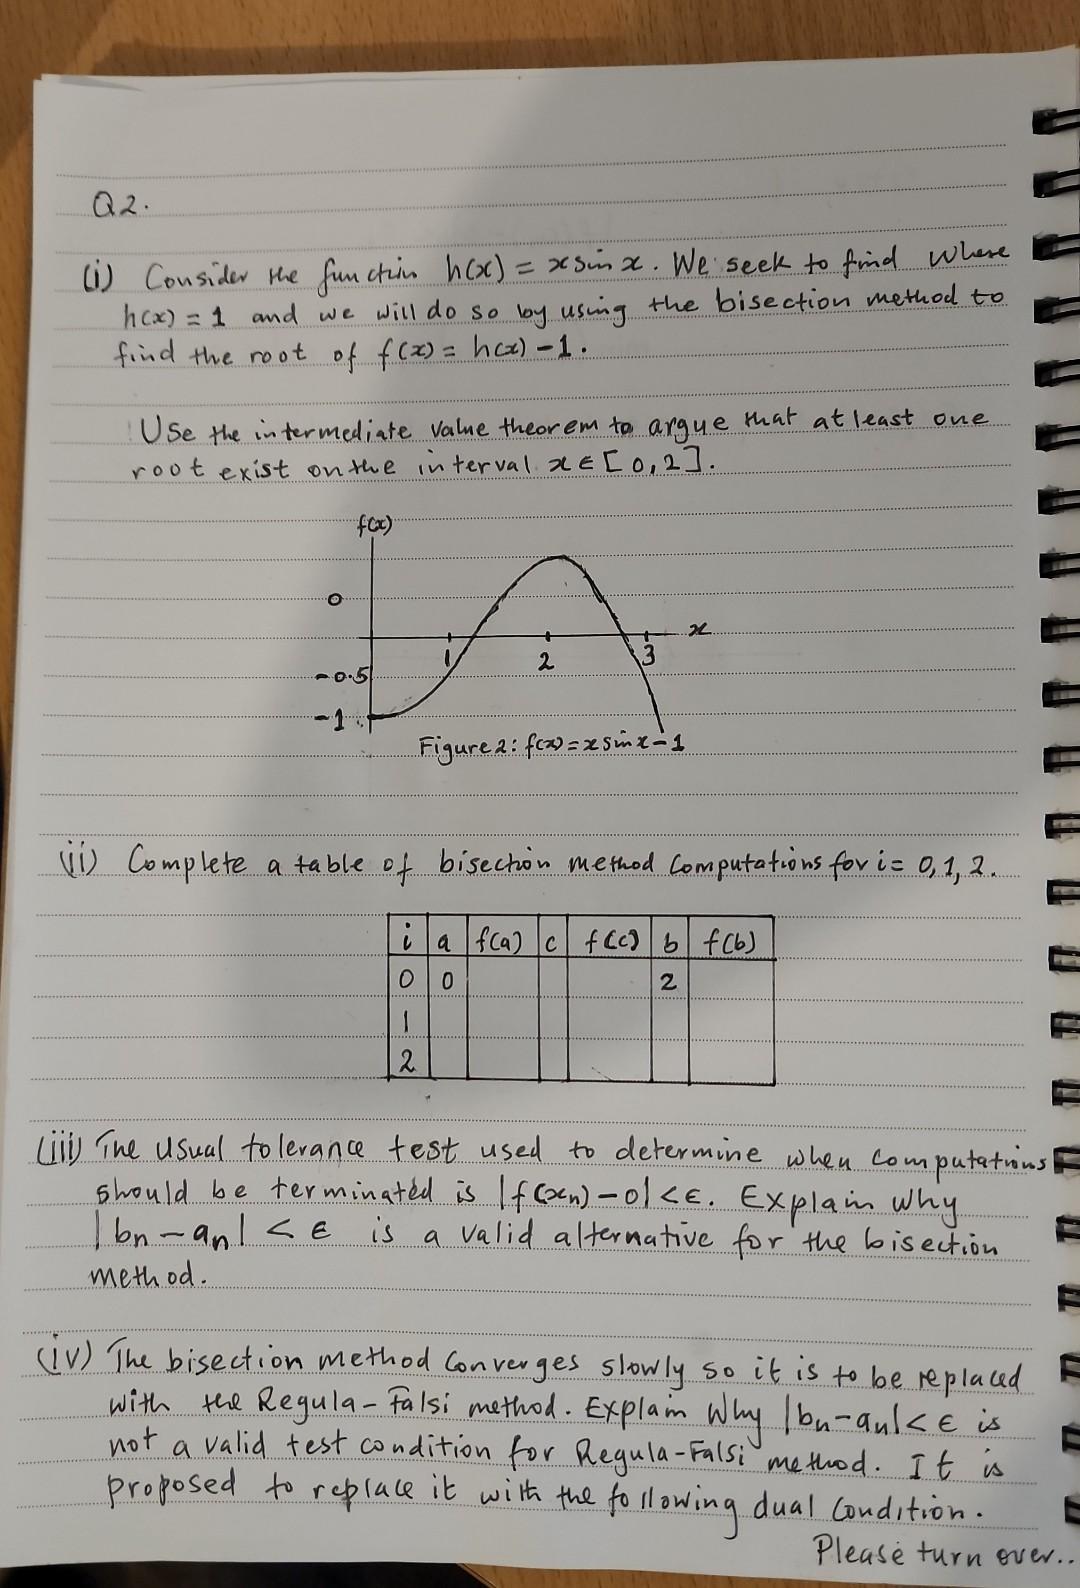 Q2.
(i) Consider the function h(x) = x sin x. We seek to find where
h(x) = 1 and we will do so by using the bisection method to
find the root of f(x) = h(x) - 1.
Use the intermediate value theorem to argue that at least one
root exist on the interval x ∈ [0,2].
f(x)
0
x
1 2 3
-0.5
-1
Figure 2: f(x) = x sin x - 1
(ii) Complete a table of bisection method computations for i = 0, 1, 2.
i a f(a) c f(c) b f(b)
0 0 2
1
2
(iii) The usual tolerance test used to determine when computations
should be terminated is |f(xn) - 0| < ε. Explain why
|bn - an| < ε is a valid alternative for the bisection
method.
(iv) The bisection method converges slowly so it is to be replaced
with the Regula-Falsi method. Explain why |bn - an| < ε is
not a valid test condition for Regula-Falsi method. It is
proposed to replace it with the following dual condition.
Please turn over..